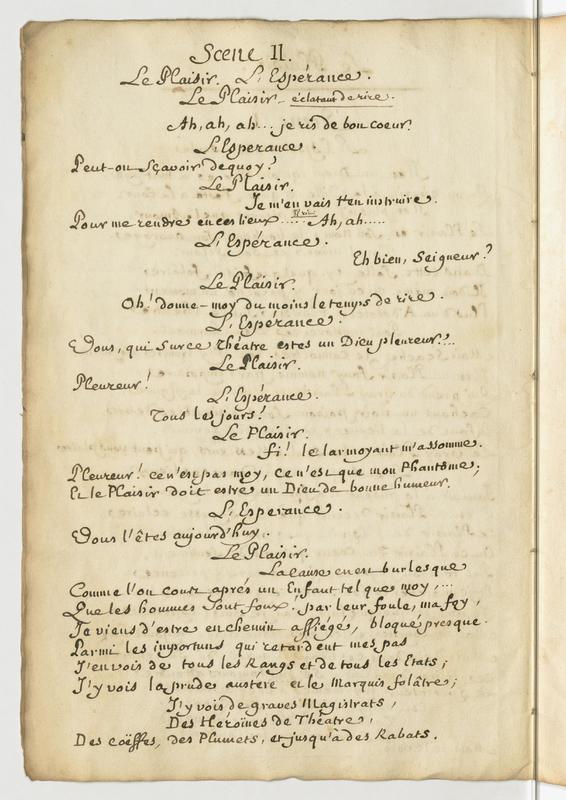 Scene II.
Le Plaisir. L'Espérance.
Le Plaisir - éclatant de rire.
Ah, ah, ah... je ris de bon coeur.
L'Esperance.
Peut-on Sçavoir dequoy?
Le Plaisir.
Je m'en vais t'en instruire.
Pour me rendre en ces lieux ..... Ah, ah.....
L'Espérance.
Eh bien, Seigneur?
Le Plaisir.
Oh! donne-moy du moins le temps de rire.
L'Espérance.
Vous, qui sur ce Théatre estes un Dieu pleureur!...
Le Plaisir.
Pleureur!
L'Espérance.
Tous les jours!
Le Plaisir.
fi! le larmoyant m'assomme.
Pleureur! ce n'est pas moy, ce n'est que mon Phantôme;
Et le Plaisir doit estre un Dieu de bonne humeur.
L'Esperance.
Vous l'êtes aujourd'huy.
Le Plaisir.
La cause en est burlesque
Comme l'on court aprés un Enfant tel que moy,...
Que les hommes sont foux. par leur foule, ma foy,
Je viens d'estre en chemin assiégé, bloqué presque.
Parmi les importuns qui retardent mes pas
J'en vois de tous les Rangs et de tous les Etats;
J'y vois la prude austére et le Marquis folâtre;
J'y vois de graves Magistrats,
Des Heroïnes de Théatre,
Des coëffes, des Plumets, et jusqu'à des Rabats.